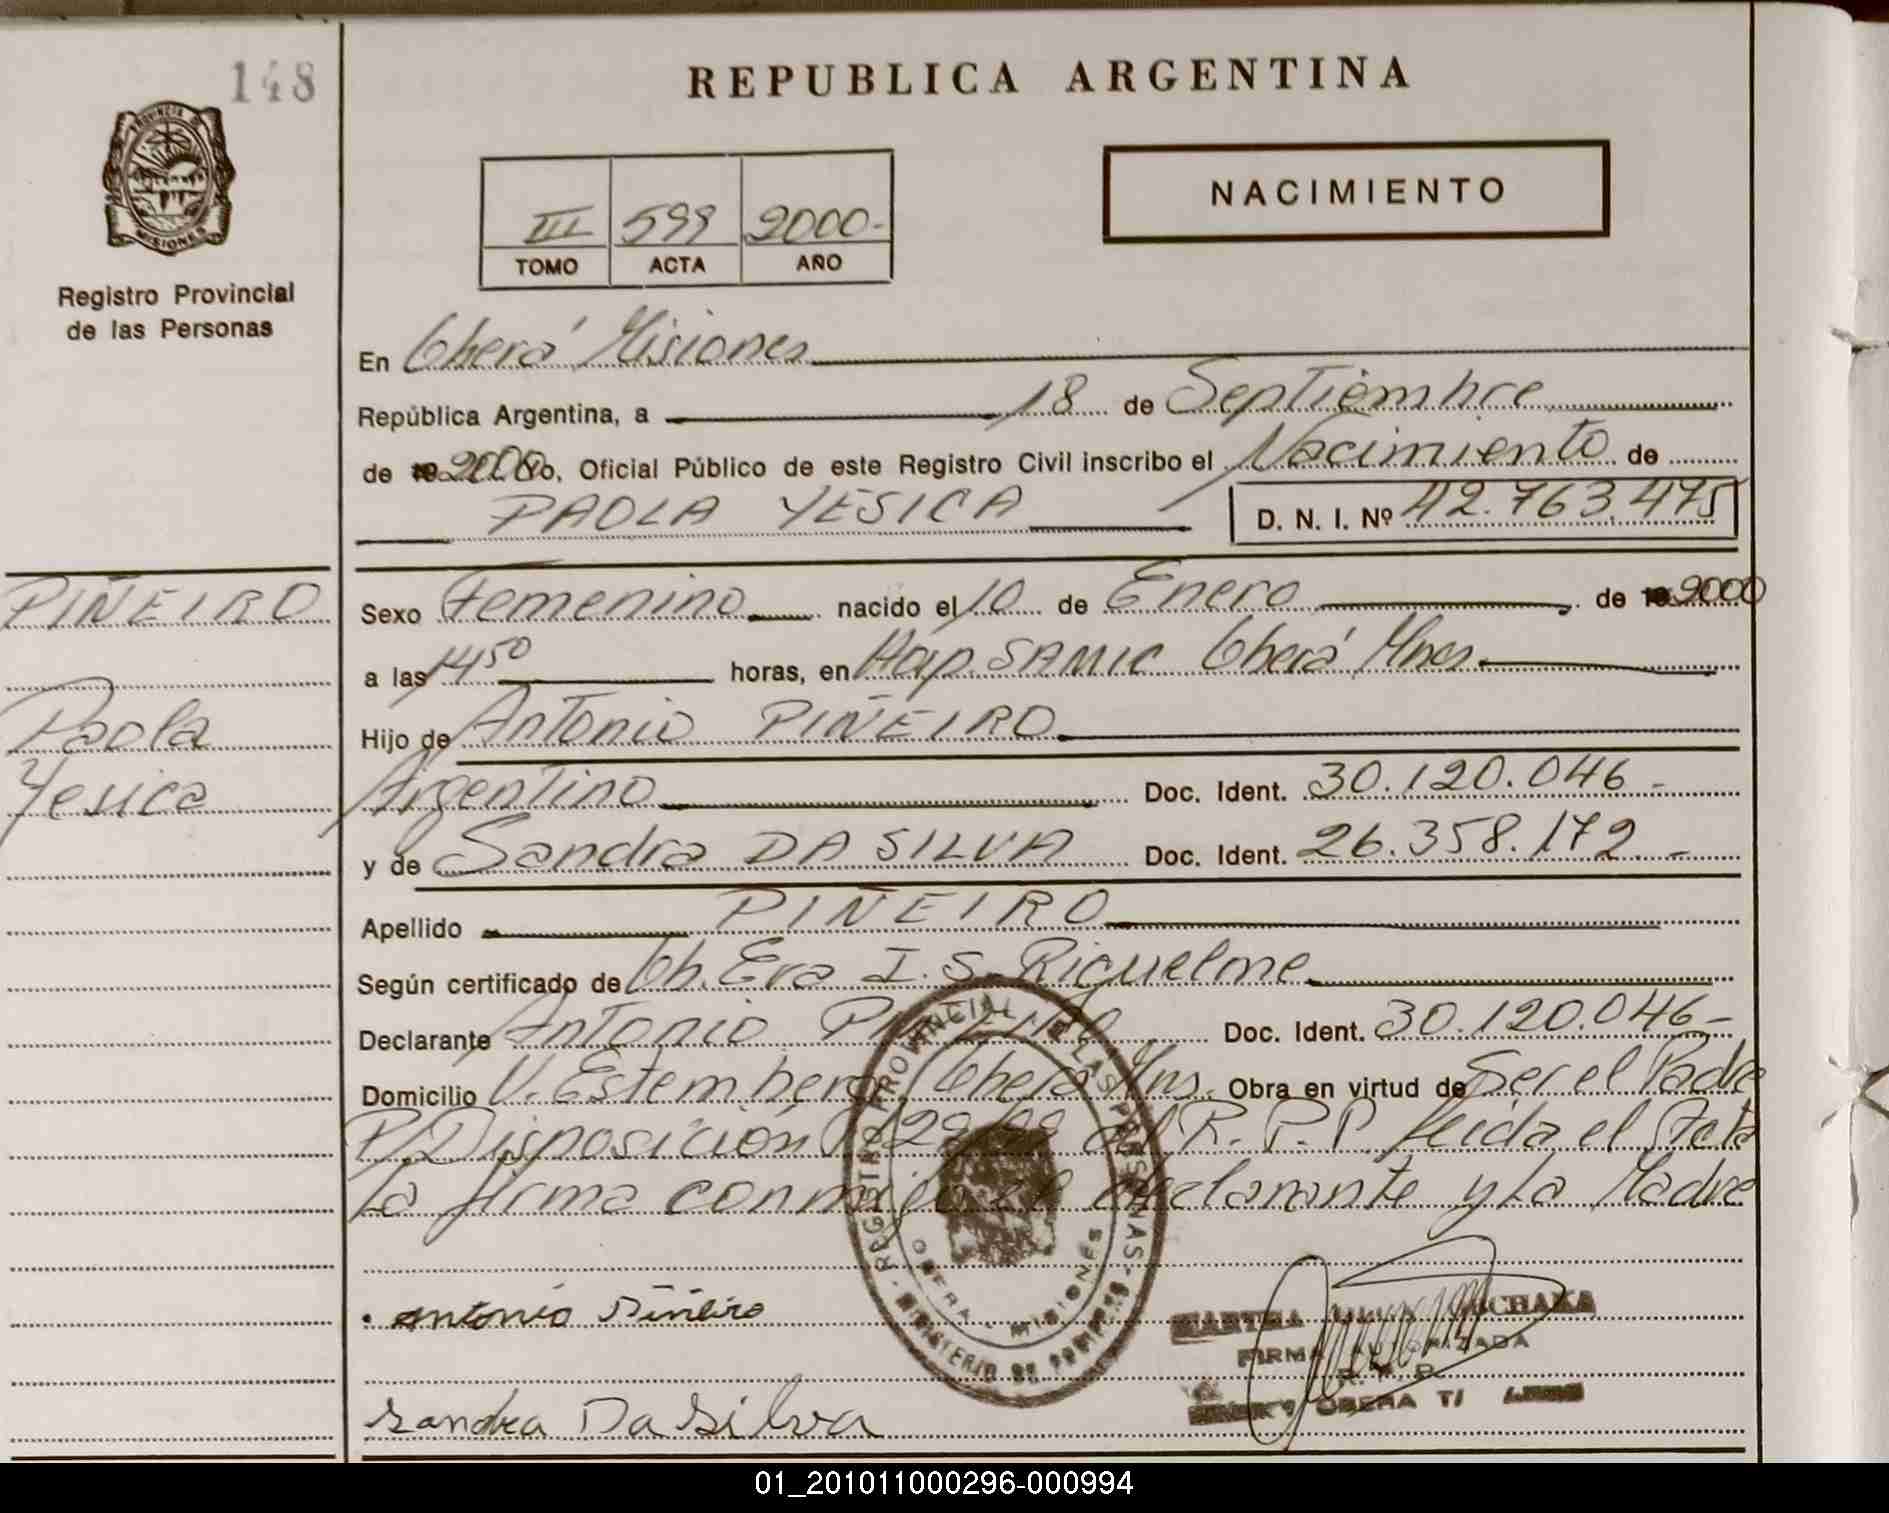 148
REPUBLICA ARGENTINA
PROVINCIA DE MISIONES
NACIMIENTO
III 599 2000-
TOMO ACTA AÑO
Registro Provincial
de las Personas
En Oberá Misiones
República Argentina, a 18 de Septiembre
de 19 2000 Yo, Oficial Público de este Registro Civil inscribo el Nacimiento de
PAOLA YESICA D. N. I. Nº 42.763.475
PIÑEIRO
Paola
Yesica
Sexo Femenino nacido el 10 de Enero de 19 2000
a las 14 50 horas, en Hosp. SAMIC Oberá Mnes.
Hijo de Antonio PIÑEIRO
Argentino Doc. Ident. 30.120.046-
y de Sandra DA SILVA Doc. Ident. 26.358.172-
Apellido PIÑEIRO
Según certificado de Ob. Eva I. S. Riquelme
Declarante Antonio PIÑEIRO Doc. Ident. 30.120.046-
Domicilio V. Estemberg Oberá Mns. Obra en virtud de Ser el Padre
P/Disposición R.P.P. leida el Acta
La firma conmigo el declarante y La Madre
REGISTRO PROVINCIAL DE LAS PERSONAS
OBERA - MISIONES
MINISTERIO DE
Antonio Piñeiro
MARTHA
FIRMA AUTORIZADA
R. P. P.
OBERA
Sandra Da Silva
01_201011000296-000994